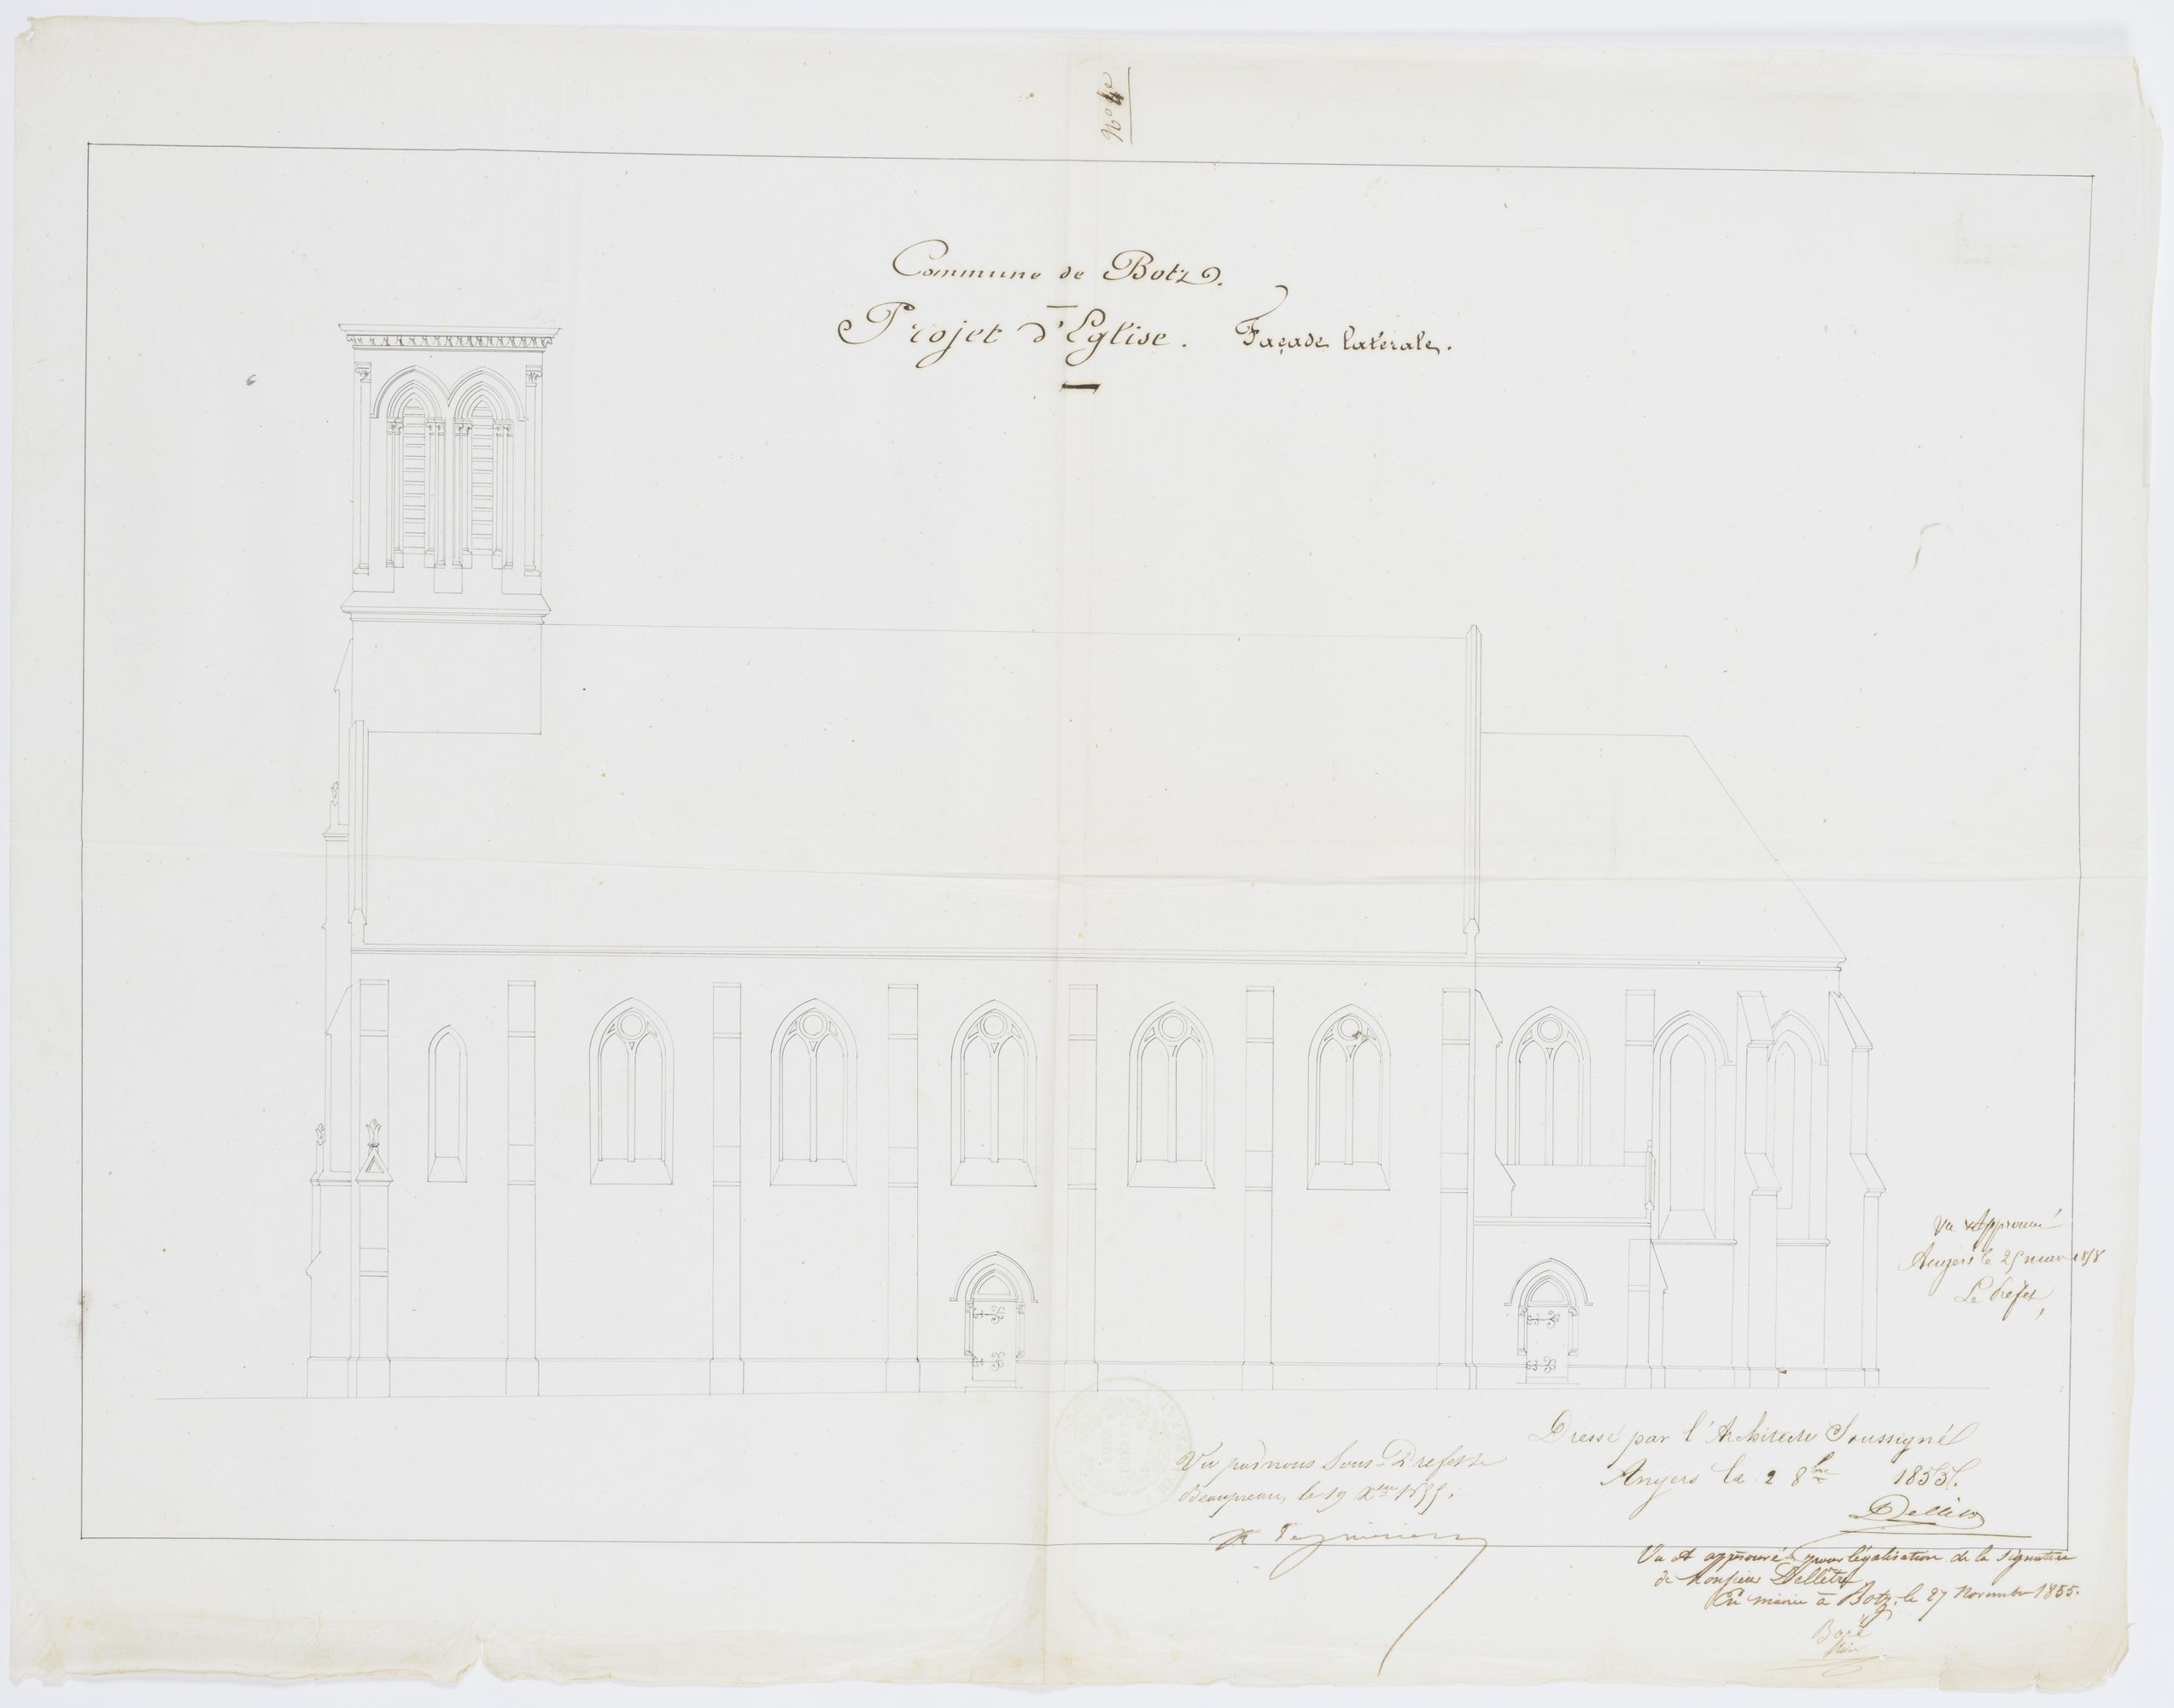 N° 4
Commune de Botz.
Projet d'Eglise. Façade latérale.
Vu & Approuvé
Angers le 25 mars 1858
Le Préfet,
Dressé par l'Architecte Soussigné
Angers le 2 8bre 1855.
Vu par nous Sous-Préfet de
Beaupreau, le 19 Xbre 1855.
Vu et approuvé pour légalisation de la signature
de Monsieur Dellêtre
En mairie à Botz, le 27 Novembre 1855.